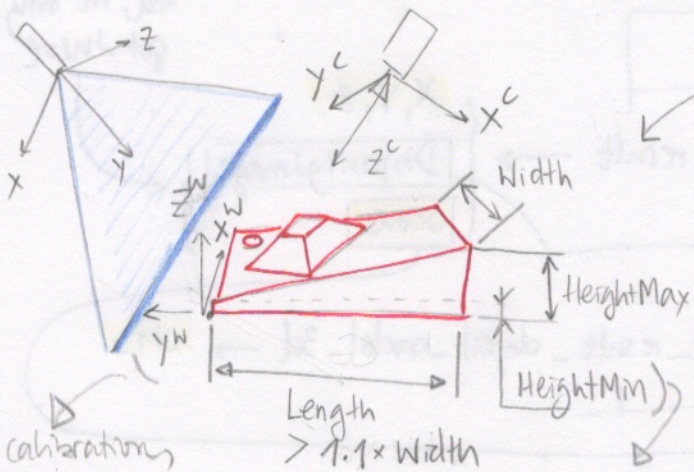 Z
X
Y
Y^C
X^C
Z^C
Z^W
X^W
Y^W
Width
HeightMax
HeightMin)
Length
> 1.1 x Width
calibration,